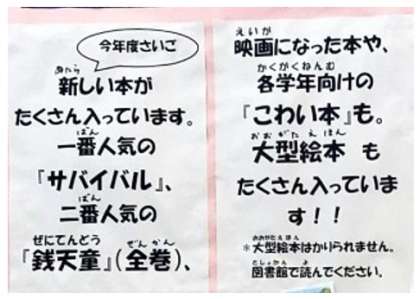 今年度さいご
新しい本が
たくさん入っています。
一番人気の
『サバイバル』、
二番人気の
『銭天童』(全巻)、
映画になった本や、
各学年向けの
『こわい本』も。
大型絵本 も
たくさん入っていま
す!!
*大型絵本はかりられません。
図書館で読んでください。